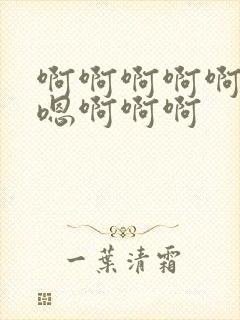 啊啊啊啊啊
嗯啊啊啊
一葉清霜